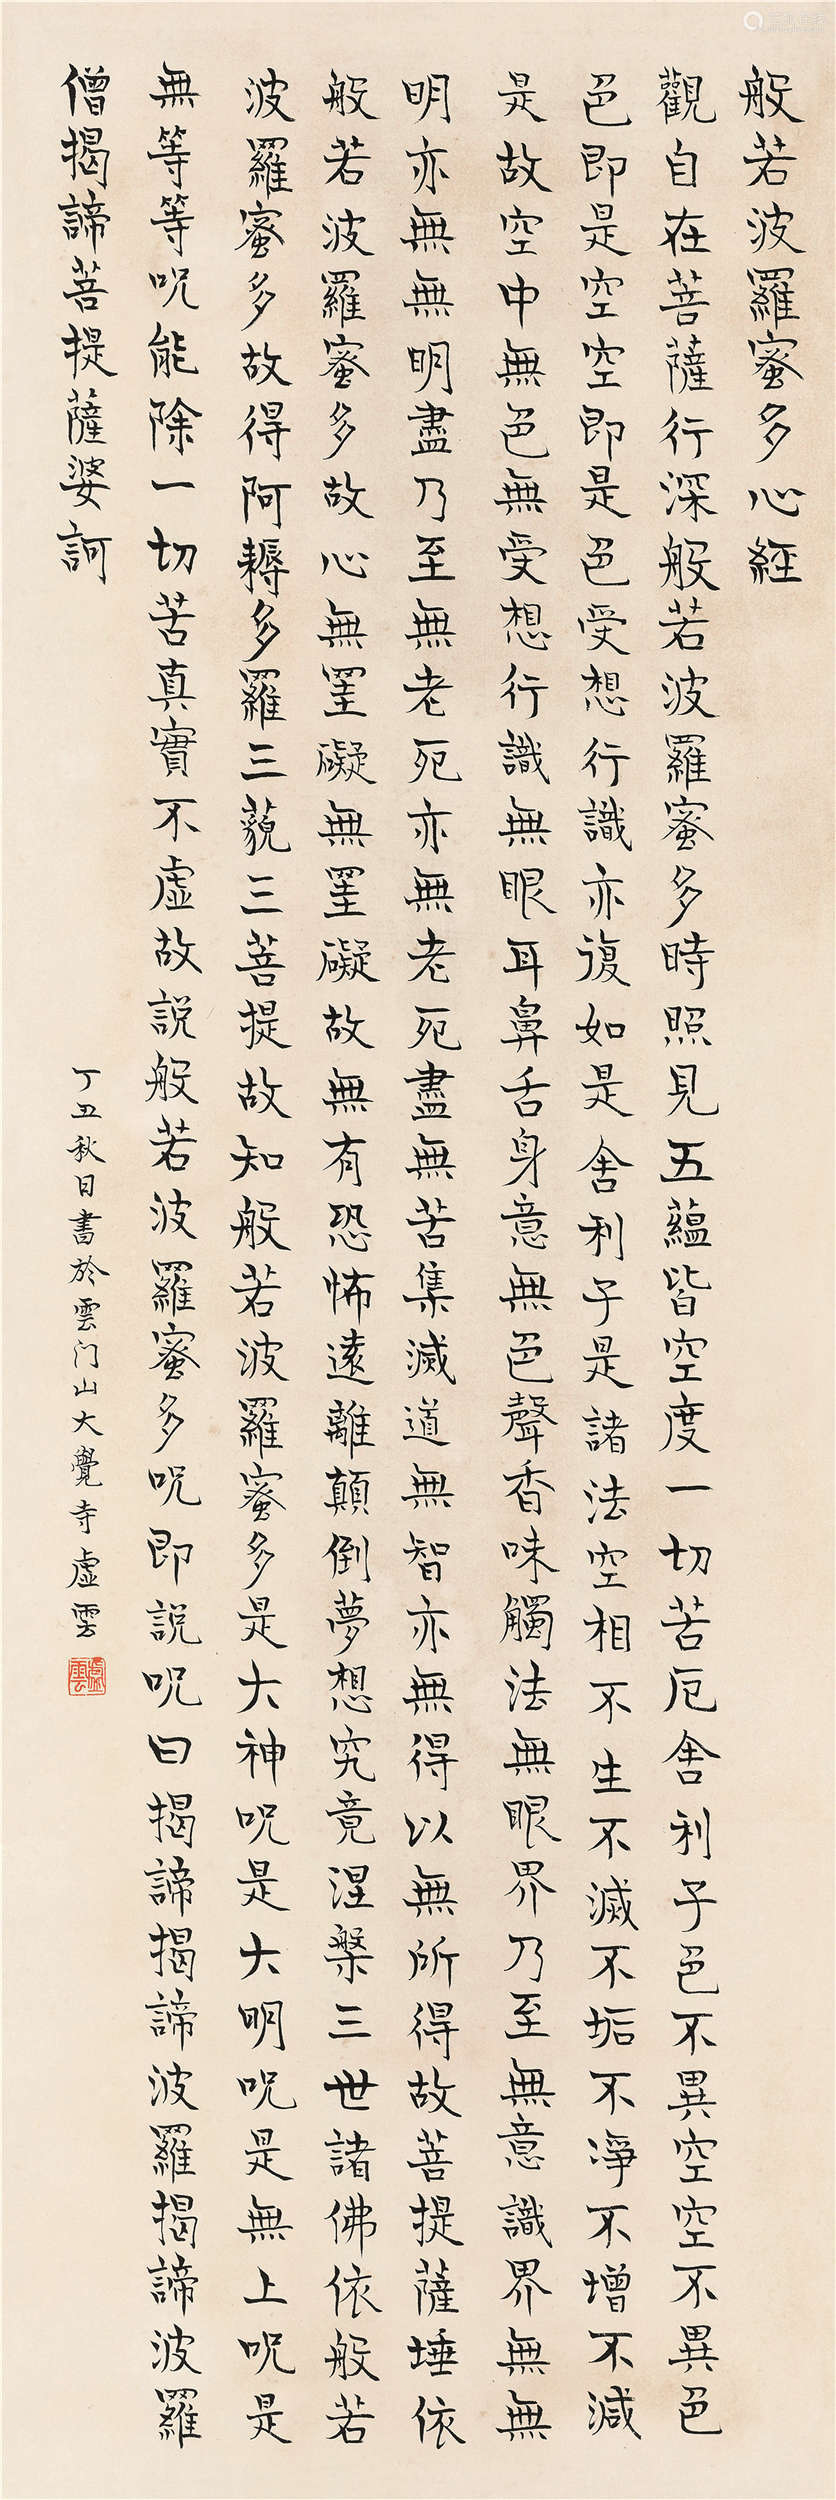 般若波羅蜜多心經
觀自在菩薩行深般若波羅蜜多時照見五蘊皆空度一切苦厄舍利子色不異空空不異色
色即是空空即是色受想行識亦復如是舍利子是諸法空相不生不滅不垢不淨不增不減
是故空中無色無受想行識無眼耳鼻舌身意無色聲香味觸法無眼界乃至無意識界無無
明亦無無明盡乃至無老死亦無老死盡無苦集滅道無智亦無得以無所得故菩提薩埵依
般若波羅蜜多故心無罣礙無罣礙故無有恐怖遠離顛倒夢想究竟涅槃三世諸佛依般若
波羅蜜多故得阿耨多羅三藐三菩提故知般若波羅蜜多是大神呪是大明呪是無上呪是
無等等呪能除一切苦真實不虛故說般若波羅蜜多呪即說呪曰揭諦揭諦波羅揭諦波羅
僧揭諦菩提薩婆訶
丁丑秋日書於雲门山大覺寺虛雲
虛雲